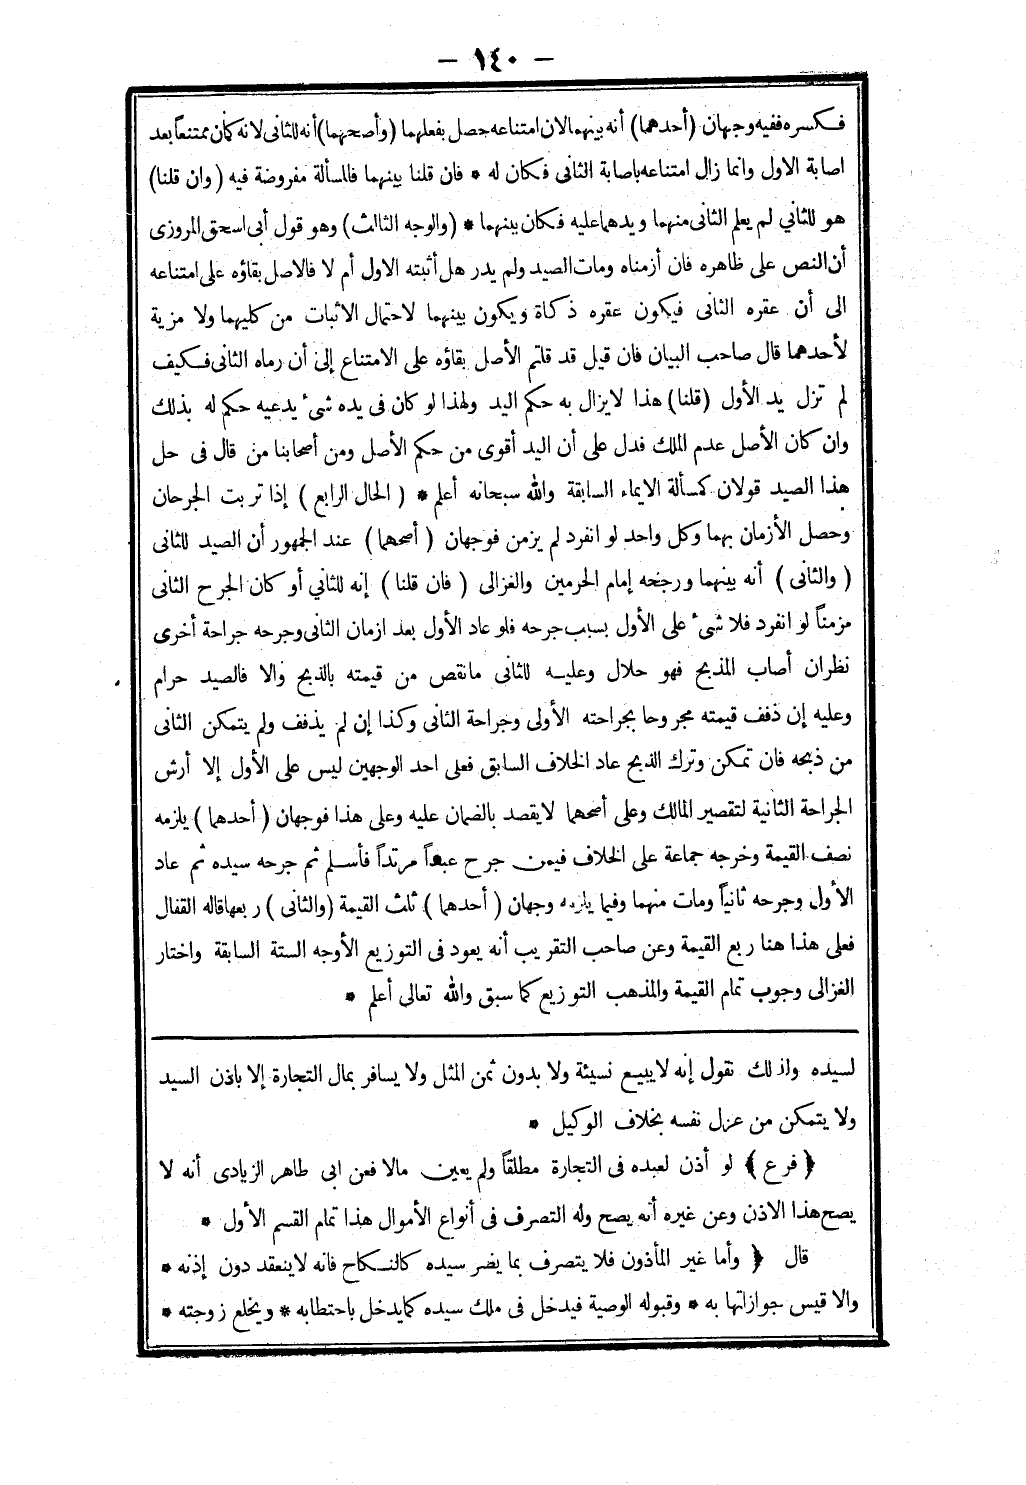 — ١٤٠ —
فكسره ففيه وجهان (أحدهما) أنه بينهما لان امتناعه حصل بفعلهما (وأصحهما) أنه للثانى لانه كأن ممتنعاً بعد
اصابة الاول وانما زال امتناعه باصابة الثانى فكان له * فان قلنا بينهما فالمسألة مفروضة فيه (وان قلنا)
هو للثاني لم يعلم الثانى منهما ويدهما عليه فكان بينهما * (والوجه الثالث) وهو قول أبى اسحق المروزى
أن النص على ظاهره فان أزمناه ومات الصيد ولم يدر هل أثبته الاول أم لا فالاصل بقاؤه على امتناعه
الى أن عقره الثانى فيكون عقره ذكاة ويكون بينهما لاحتمال الاثبات من كليهما ولا مزية
لأحدهما قال صاحب البيان فان قيل قد قلتم الأصل بقاؤه على الامتناع إلى أن رماه الثانى فكيف
لم تزل يد الأول (قلنا) هذا لا يزال به حكم اليد ولهذا لو كان فى يده شىء يدعيه حكم له بذلك
وان كان الأصل عدم الملك فدل على أن اليد أقوى من حكم الأصل ومن أصحابنا من قال فى حل
هذا الصيد قولان كمسألة الايماء السابقة والله سبحانه أعلم * (الحال الرابع) إذا تربت الجرحان
وحصل الأزمان بهما وكل واحد لو انفرد لم يزمن فوجهان (أصحهما) عند الجمهور أن الصيد للثانى
(والثانى) أنه بينهما ورجحه إمام الحرمين والغزالى (فان قلنا) إنه للثاني أو كان الجرح الثانى
مزمناً لو انفرد فلا شىء على الأول بسبب جرحه فلو عاد الأول بعد ازمان الثانى وجرحه جراحة أخرى
نظران أصاب المذبح فهو حلال وعليه للثانى مانقص من قيمته بالذبح والا فالصيد حرام
وعليه إن ذفف قيمته مجروحا بجراحته الأولى وجراحة الثانى وكذا إن لم يذفف ولم يتمكن الثانى
من ذبحه فان تمكن وترك الذبح عاد الخلاف السابق فعلى احد الوجهين ليس على الأول إلا أرش
الجراحة الثانية لتقصير المالك وعلى أصحهما لايقصد بالضمان عليه وعلى هذا فوجهان (أحدهما) يلزمه
نصف القيمة وخرجه جماعة على الخلاف فيمن جرح عبداً مرتداً فأسلم ثم جرحه سيده ثم عاد
الأول وجرحه ثانياً ومات منهما وفيما يلزمه وجهان (أحدهما) ثلث القيمة (والثانى) ربعها قاله القفال
فعلى هذا هنا ربع القيمة وعن صاحب التقريب أنه يعود فى التوزيع الأوجه الستة السابقة واختار
الغزالى وجوب تمام القيمة والمذهب التوزيع كما سبق والله تعالى أعلم *
لسيده ولذلك نقول إنه لايبيع نسيئة ولا بدون ثمن المثل ولا يسافر بمال التجارة إلا باذن السيد
ولا يتمكن من عزل نفسه بخلاف الوكيل *
﴿فرع﴾ لو أذن لعبده فى التجارة مطلقاً ولم يعين مالا فعن ابى طاهر الزيادى أنه لا
يصح هذا الاذن وعن غيره أنه يصح وله التصرف فى أنواع الأموال هذا تمام القسم الأول *
قال ﴿وأما غير المأذون فلا يتصرف بما يضر سيده كالنكاح فانه لاينعقد دون إذنه *
والاقيس جوازاتها به * وقبوله الوصية فيدخل فى ملك سيده كمايدخل باحتطابه * ويخلع زوجته *